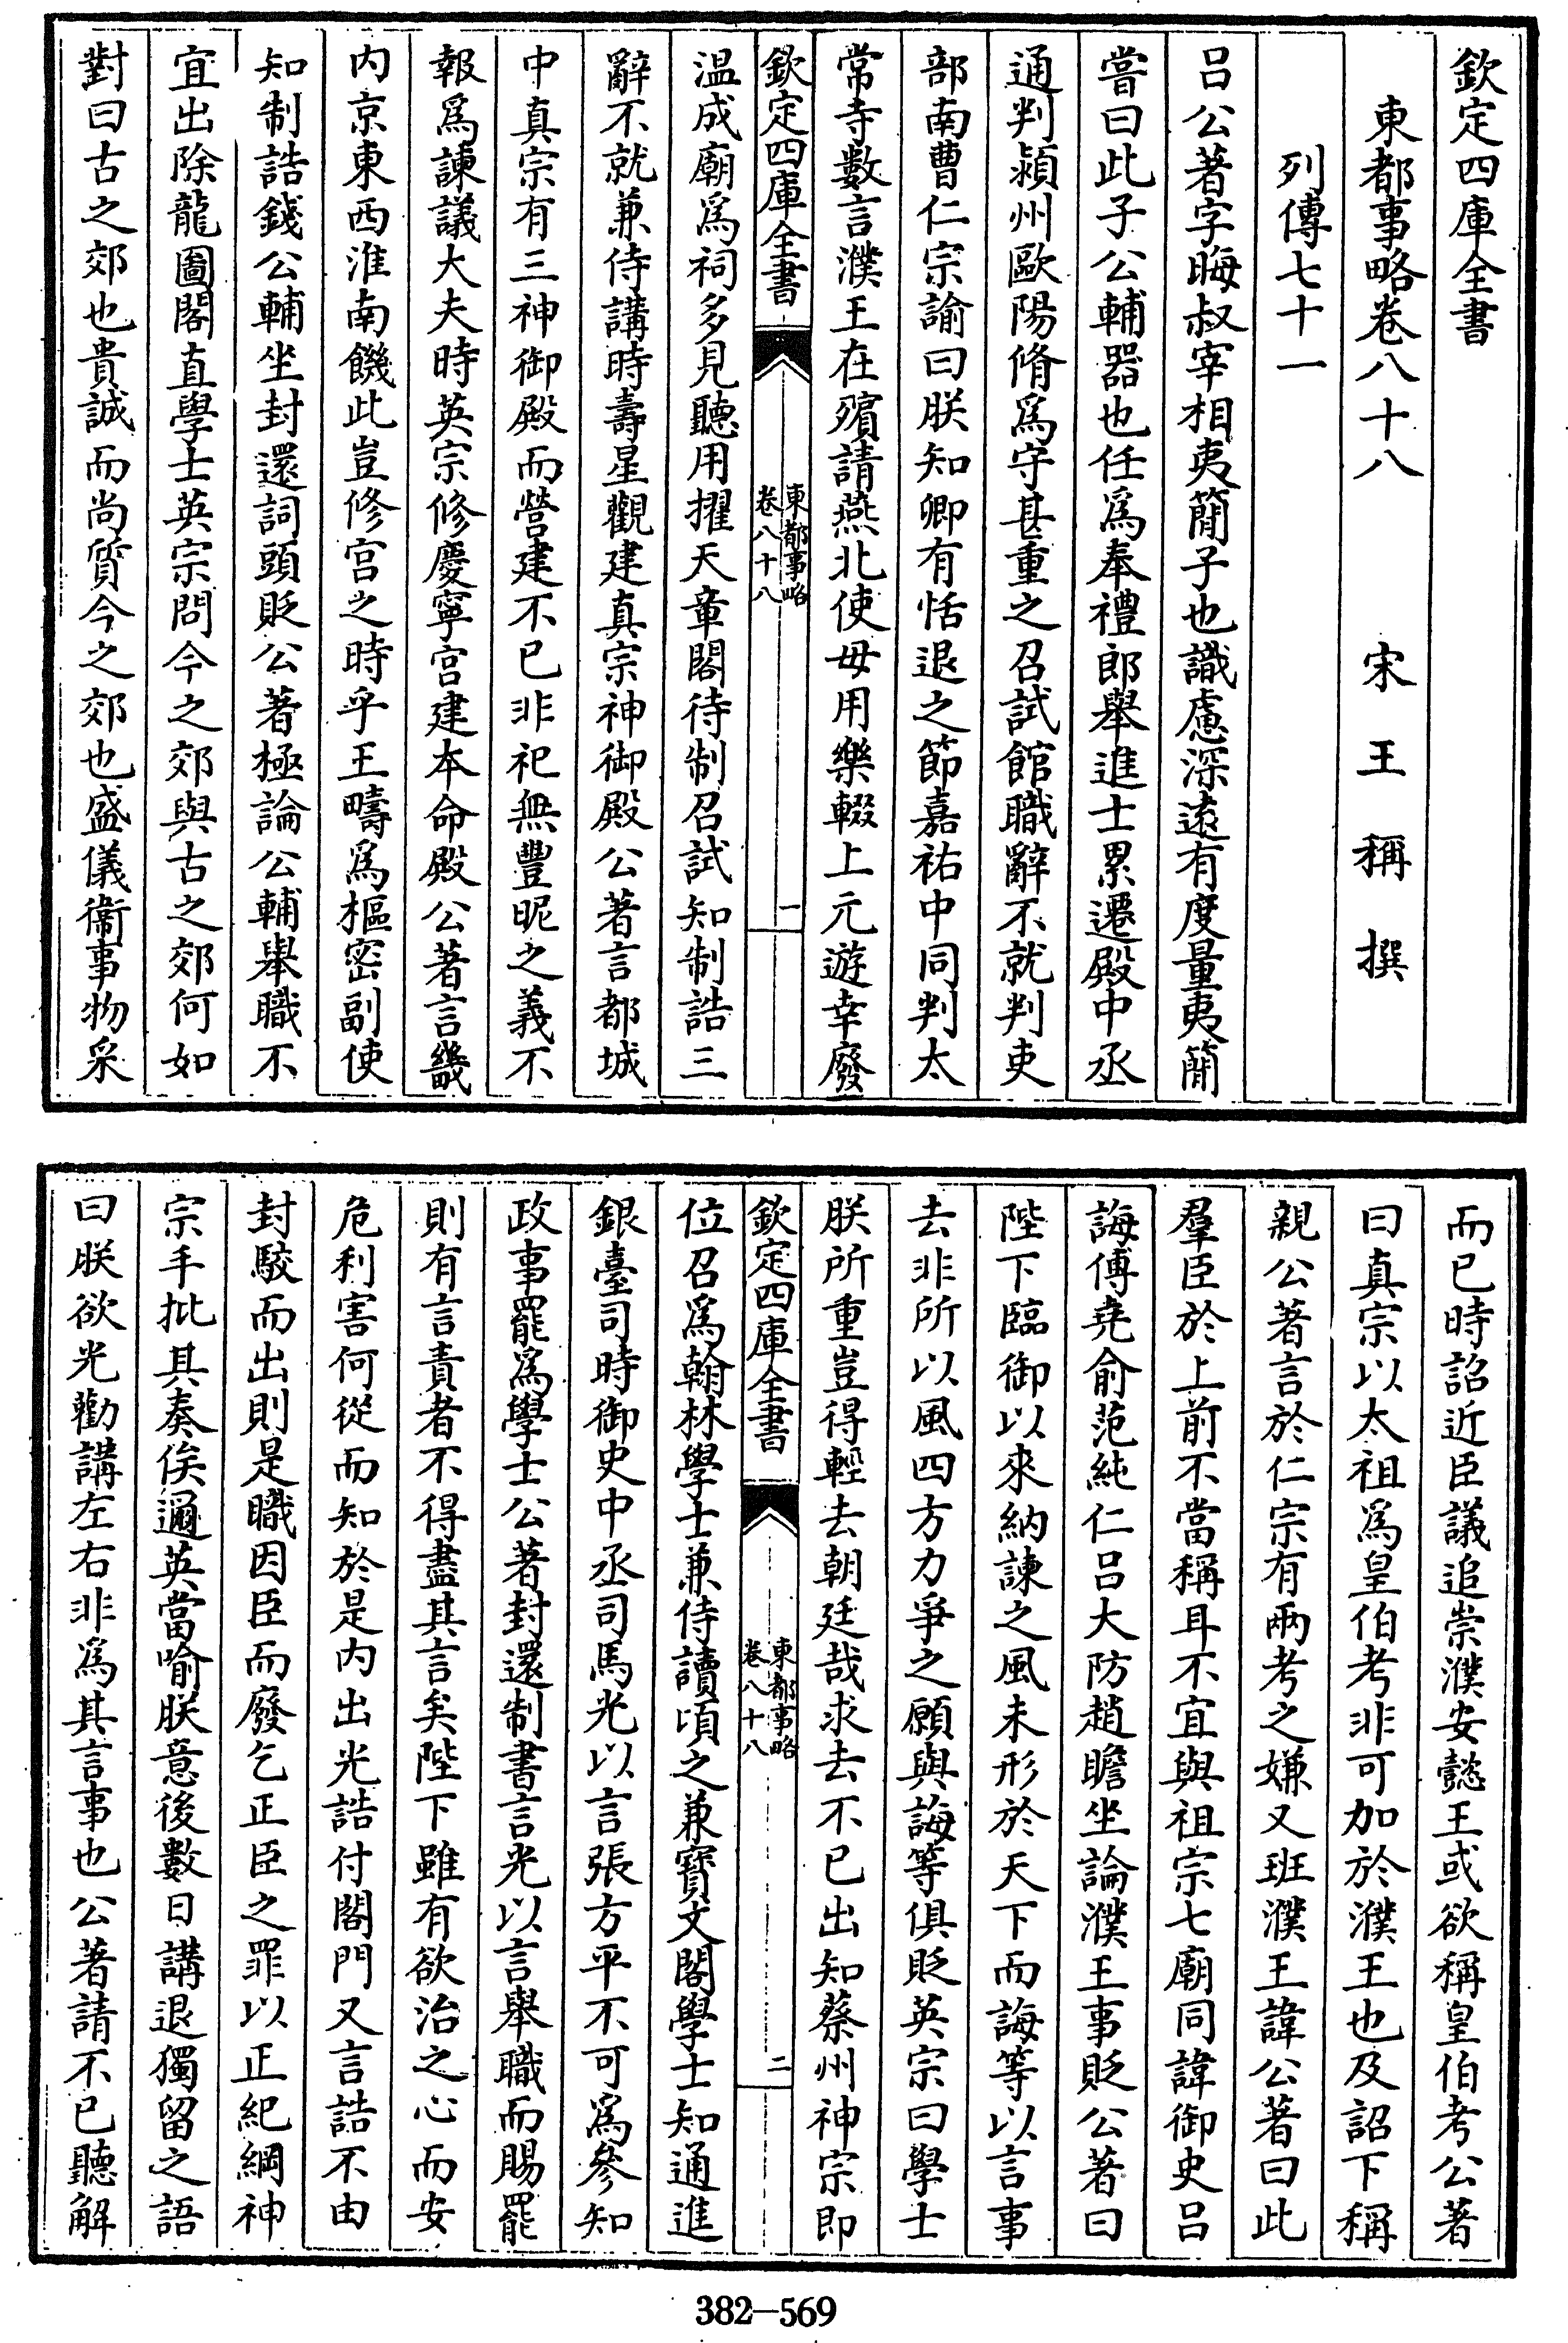 欽定四庫全書
東都事略卷八十八　宋　王　稱　撰
列傳七十一
吕公著字晦叔宰相夷簡子也識慮深逺有度量夷簡
嘗曰此子公輔器也任爲奉禮郎舉進士累遷殿中丞
通判潁州歐陽脩爲守甚重之召試館職辭不就判吏
部南曹仁宗諭曰朕知卿有恬退之節嘉祐中同判太
常寺數言濮王在殯請燕北使毋用樂輟上元遊幸廢
欽定四庫全書
東都事略
卷八十八
一
温成廟爲祠多見聽用擢天章閣待制召試知制誥三
辭不就兼侍講時壽星觀建真宗神御殿公著言都城
中真宗有三神御殿而營建不已非祀無豐昵之義不
報爲諫議大夫時英宗修慶寧宫建本命殿公著言畿
内京東西淮南饑此豈修宫之時乎王疇爲樞密副使
知制誥錢公輔坐封還詞頭貶公著極論公輔舉職不
宜出除龍圖閣直學士英宗問今之郊與古之郊何如
對曰古之郊也貴誠而尚質今之郊也盛儀衞事物采
而已時詔近臣議追崇濮安懿王或欲稱皇伯考公著
曰真宗以太祖爲皇伯考非可加於濮王也及詔下稱
親公著言於仁宗有兩考之嫌又班濮王諱公著曰此
羣臣於上前不當稱耳不宜與祖宗七廟同諱御史吕
誨傅堯俞范純仁吕大防趙瞻坐論濮王事貶公著曰
陛下臨御以來納諫之風未形於天下而誨等以言事
去非所以風四方力爭之願與誨等俱貶英宗曰學士
朕所重豈得輕去朝廷哉求去不已出知蔡州神宗即
欽定四庫全書
東都事略
卷八十八
二
位召爲翰林學士兼侍讀頃之兼寶文閣學士知通進
銀臺司時御史中丞司馬光以言張方平不可爲參知
政事罷爲學士公著封還制書言光以言舉職而賜罷
則有言責者不得盡其言矣陛下雖有欲治之心而安
危利害何從而知於是内出光誥付閤門又言誥不由
封駮而出則是職因臣而廢乞正臣之罪以正紀綱神
宗手批其奏俟邇英當喻朕意後數日講退獨留之語
曰朕欲光勸講左右非爲其言事也公著請不已聽解
382—569